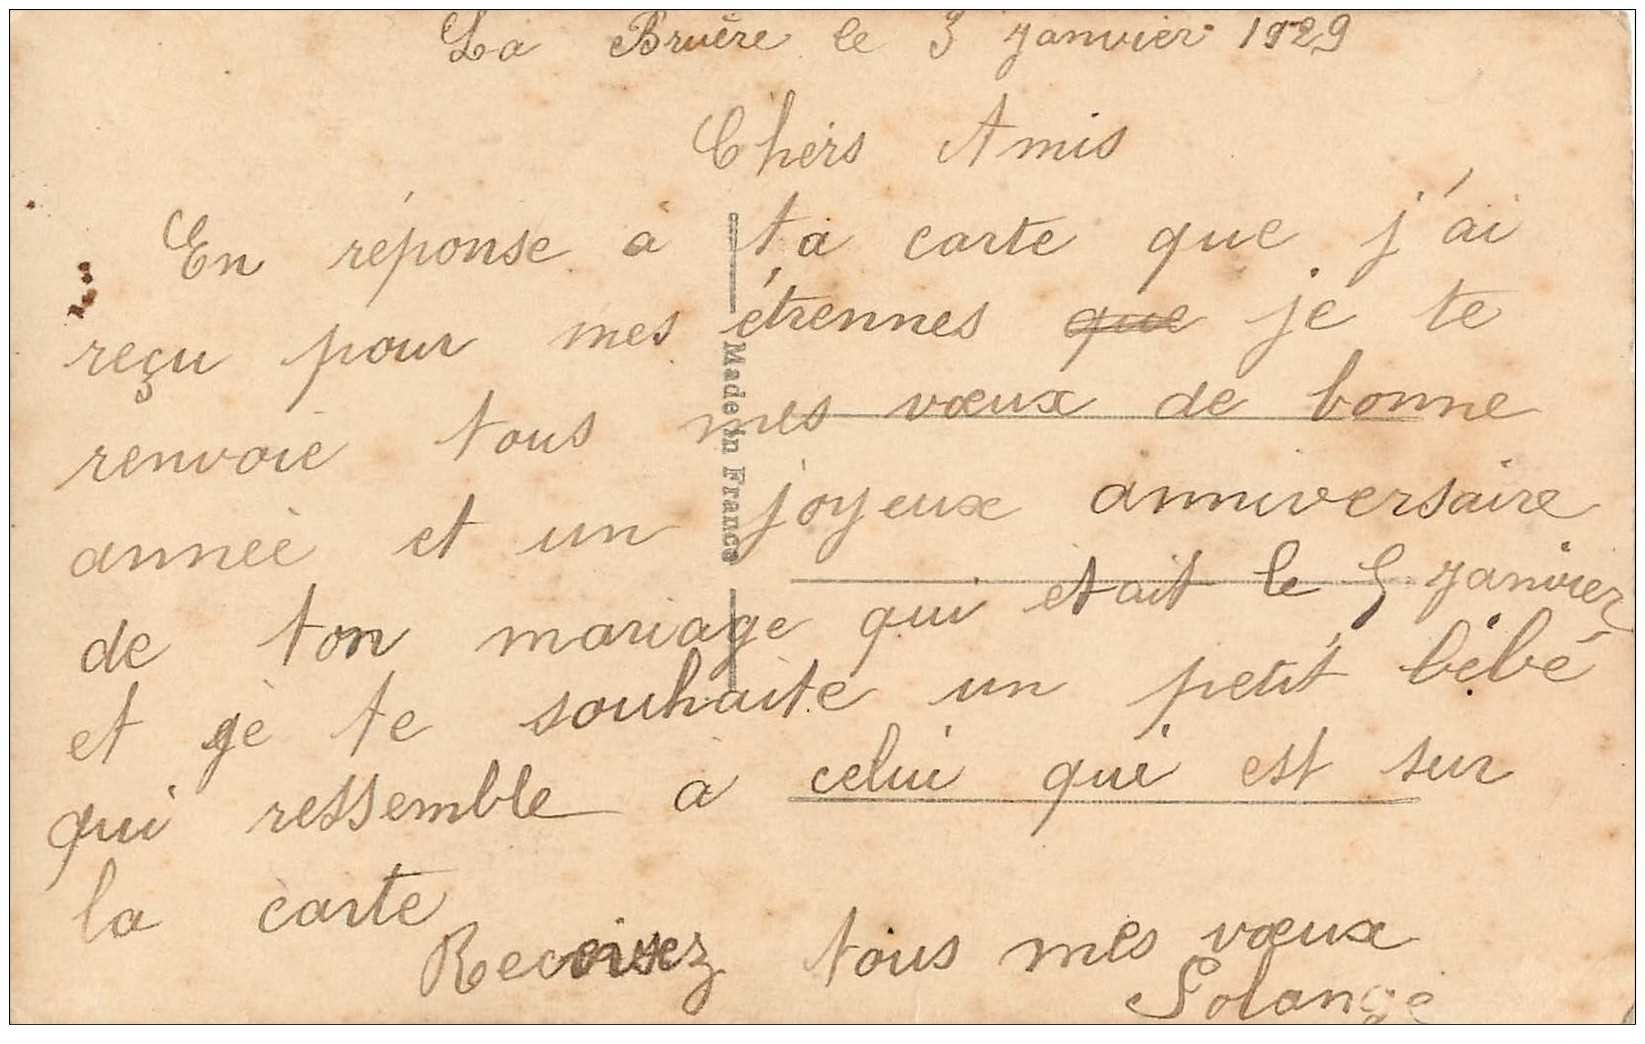 La Bruère le 3 janvier 1929
Chers Amis
En réponse à ta carte que j'ai
reçu pour mes étrennes que je te
renvoie tous mes vœux de bonne
année et un joyeux anniversaire
de ton mariage qui était le 5 janvier
et je te souhaite un petit bébé
qui ressemble à celui qui est sur
la carte
Recevez tous mes vœux
Solange
Made in France